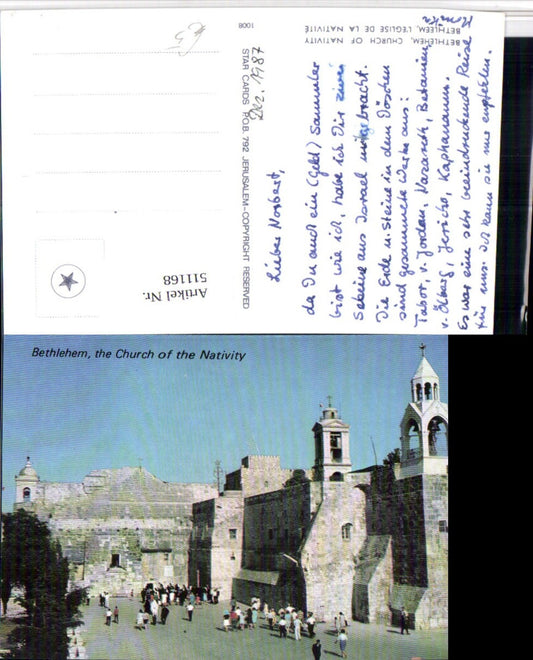 BETHLEHEM, CHURCH OF NATIVITY
BETHLÉEM, L'ÉGLISE DE LA NATIVITÉ
1008
Dez. 1987
STAR CARDS P.O.B. 792 JERUSALEM-COPYRIGHT RESERVED
€3
Artikel Nr.
511168
Lieber Norbert,
da Du auch ein (Geld) Sammler
bist wie ich, habe ich Dir
Steine aus Israel mitgebracht.
Die Erde u. Steine in dem Döschen
sind gesammelte Werke aus:
Tabor, v. Jordan, Nazareth, Betanien,
v. Ölberg, Jericho, Kapharnaum.
Es war eine sehr beeindruckende Reise
für uns. Ich kann sie nur empfehlen.
Bethlehem, the Church of the Nativity